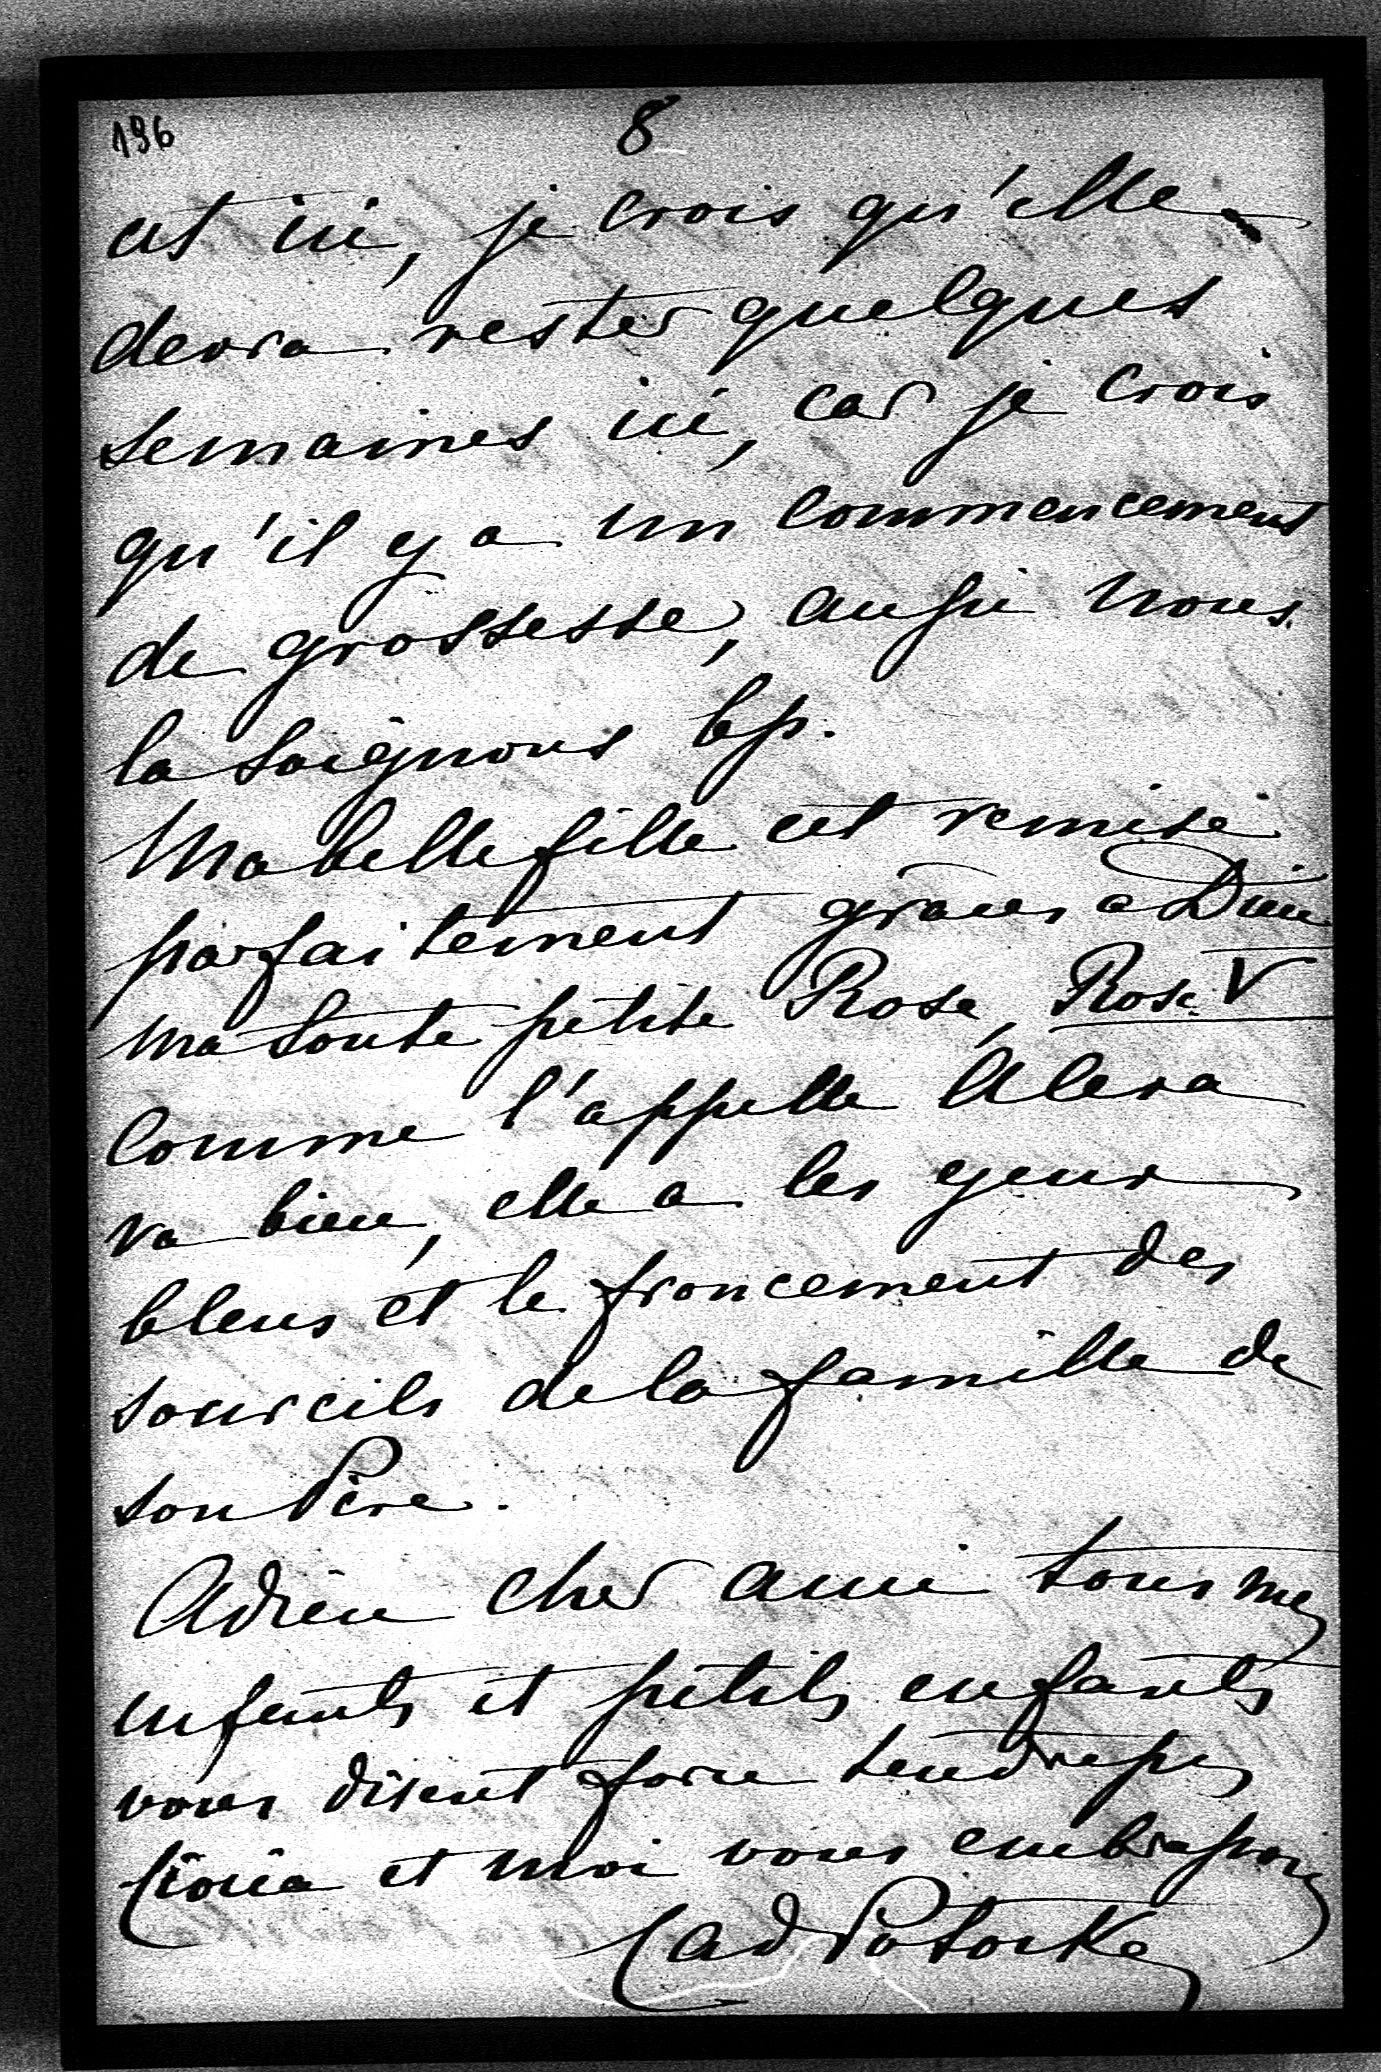 196
8
est ici, je crois qu'elle
devra rester quelques
semaines ici, car je crois
qu'il y a un commencement
de grossesse, aussi nous
la soignons bp.
Ma belle fille est remise
parfaitement grâces a Dieu
ma toute petite Rose, Rose V
comme l'appelle
va bien, elle a les yeux
bleus et le froncement des
sourcils de la famille de
son Père.
Adieu cher ami tous mes
enfants et petits enfants
vous disent force tendresses
et moi vous embrassons
Potocka